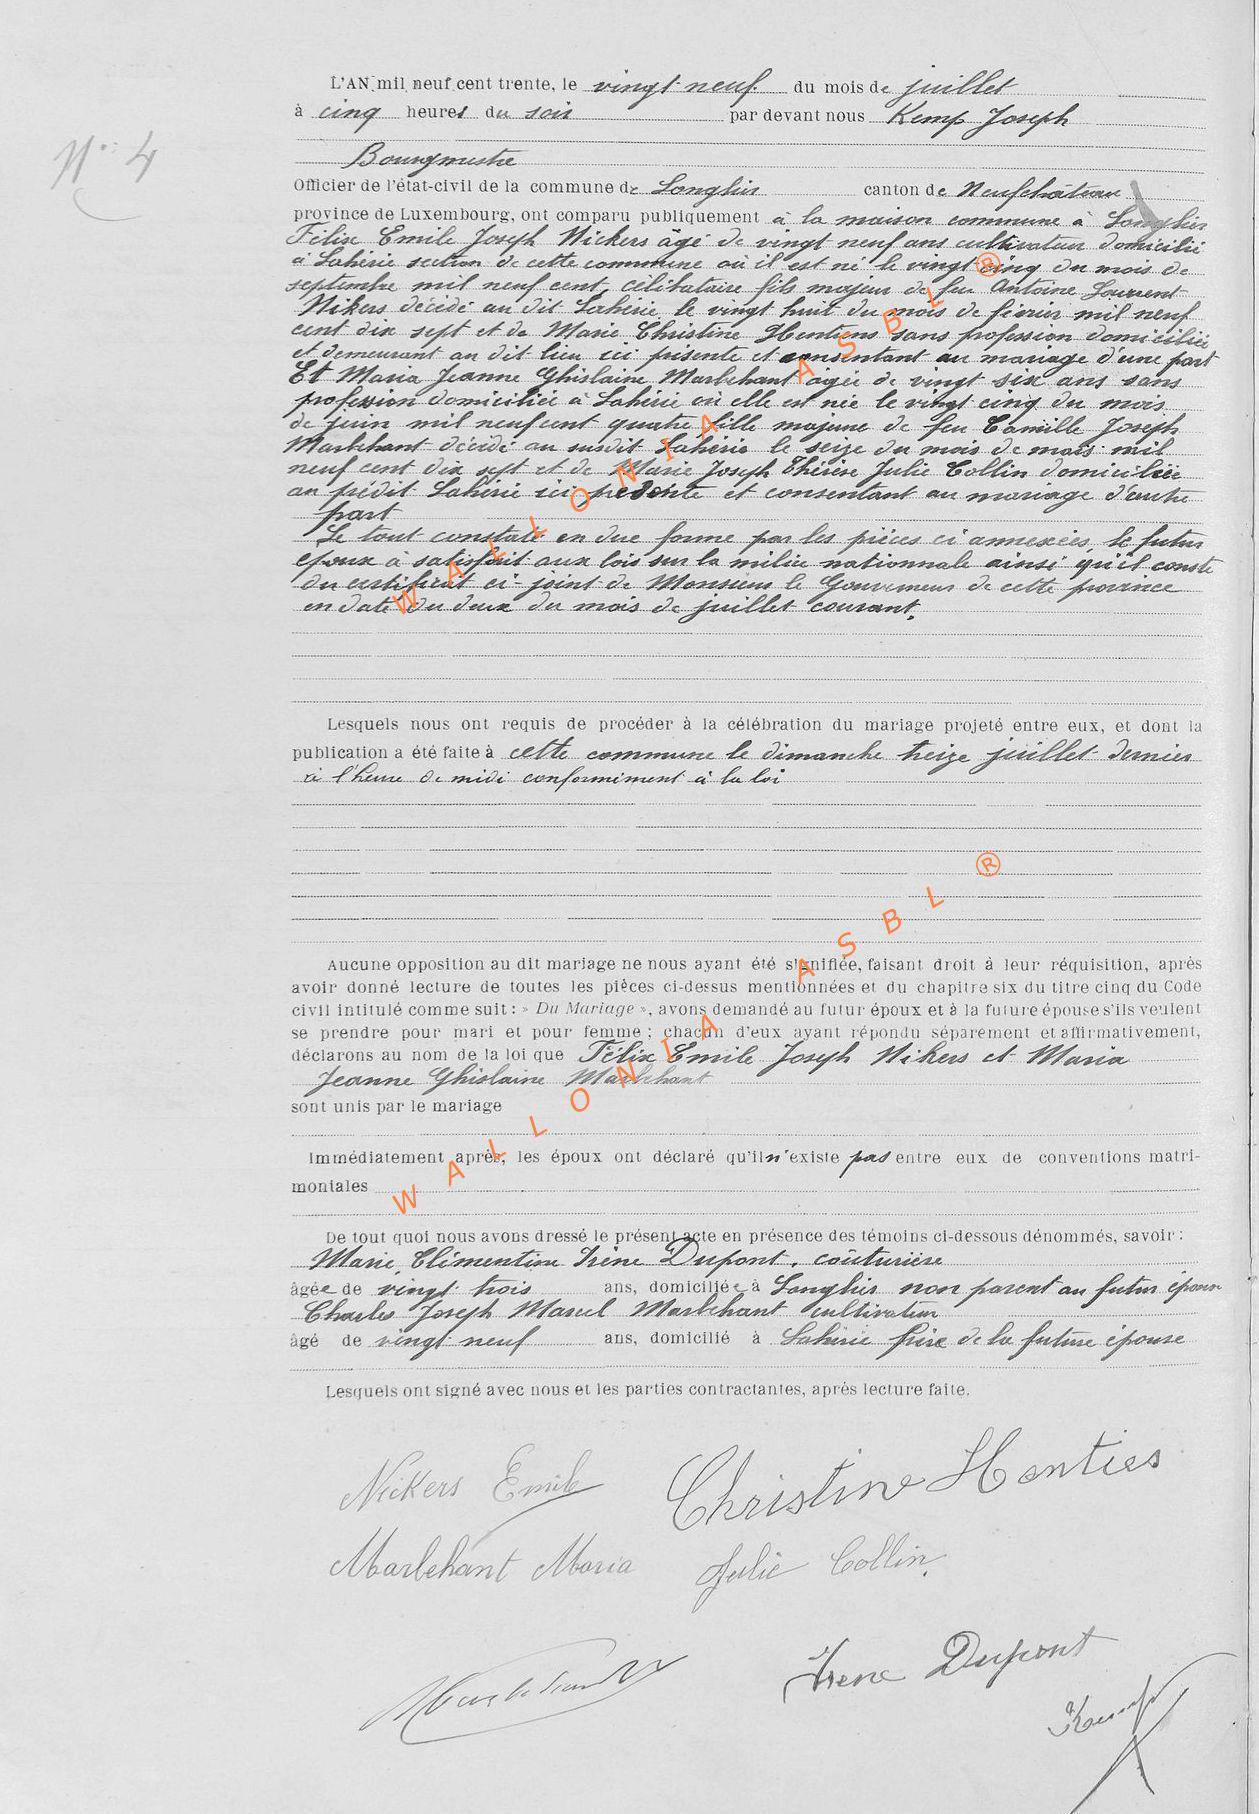 N° 4
L'AN mil neuf cent trente, le vingt neuf du mois de juillet
à cinq heures du soir par devant nous Kemp Joseph
Bourgmestre
Officier de l'état-civil de la commune de Longlier canton de Neufchâteau
province de Luxembourg, ont comparu publiquement à la maison commune à Longlier
Félix Emile Joseph Nickers âgé de vingt neuf ans cultivateur domicilié
à Lahérie section de cette commune où il est né le vingt cinq du mois de
septembre mil neuf cent, célibataire fils majeur de feu Antoine Lourent
Nikers décédé au dit Lahérie le vingt huit du mois de février mil neuf
cent dix sept et de Marie Christine Hentiens sans profession domiciliée
et demeurant au dit lieu ici présente et consentant au mariage d'une part
Et Maria Jeanne Ghislaine Marbehant âgée de vingt six ans sans
profession domiciliée à Lahérie où elle est née le vingt cinq du mois
de juin mil neuf cent quatre fille majeure de feu Camille Joseph
Marbehant décédé au susdit Lahérie le seize du mois de mars mil
neuf cent dix sept et de Marie Joseph Thérèse Julie Collin domiciliée
au prédit Lahérie ici présente et consentant au mariage d'autre
part
Le tout constaté en due forme par les pièces ci annexées, le futur
époux à satisfait aux lois sur la milice nationale ainsi qu'il conste
du certificat ci-joint de Monsieur le Gouverneur de cette province
en date du deux du mois de juillet courant.
Lesquels nous ont requis de procéder à la célébration du mariage projeté entre eux, et dont la
publication a été faite à cette commune le dimanche treize juillet dernier
à l'heure de midi conformément à la loi
Aucune opposition au dit mariage ne nous ayant été signifiée, faisant droit à leur réquisition, après
avoir donné lecture de toutes les pièces ci-dessus mentionnées et du chapitre six du titre cinq du Code
civil intitulé comme suit : » Du Mariage », avons demandé au futur époux et à la future épouse s'ils veulent
se prendre pour mari et pour femme ; chacun d'eux ayant répondu séparément et affirmativement,
déclarons au nom de la loi que Félix Emile Joseph Nikers et Maria
Jeanne Ghislaine Marbehant
sont unis par le mariage
Immédiatement après, les époux ont déclaré qu'il n'existe pas entre eux de conventions matri-
moniales
De tout quoi nous avons dressé le présent acte en présence des témoins ci-dessous dénommés, savoir :
Marie Clémentine Irène Dupont, couturière
âgée de vingt trois ans, domiciliée à Longlier non parent au futur époux
Charles Joseph Marcel Marbehant cultivateur
âgé de vingt neuf ans, domicilié à Lahérie frère de la future épouse
Lesquels ont signé avec nous et les parties contractantes, après lecture faite.
Nickers Emile Christine Henties
Marbehant Maria Julie Collin.
Marbehant Irene Dupont
Kemp
WALLONIA ASBL ®
WALLONIA ASBL ®